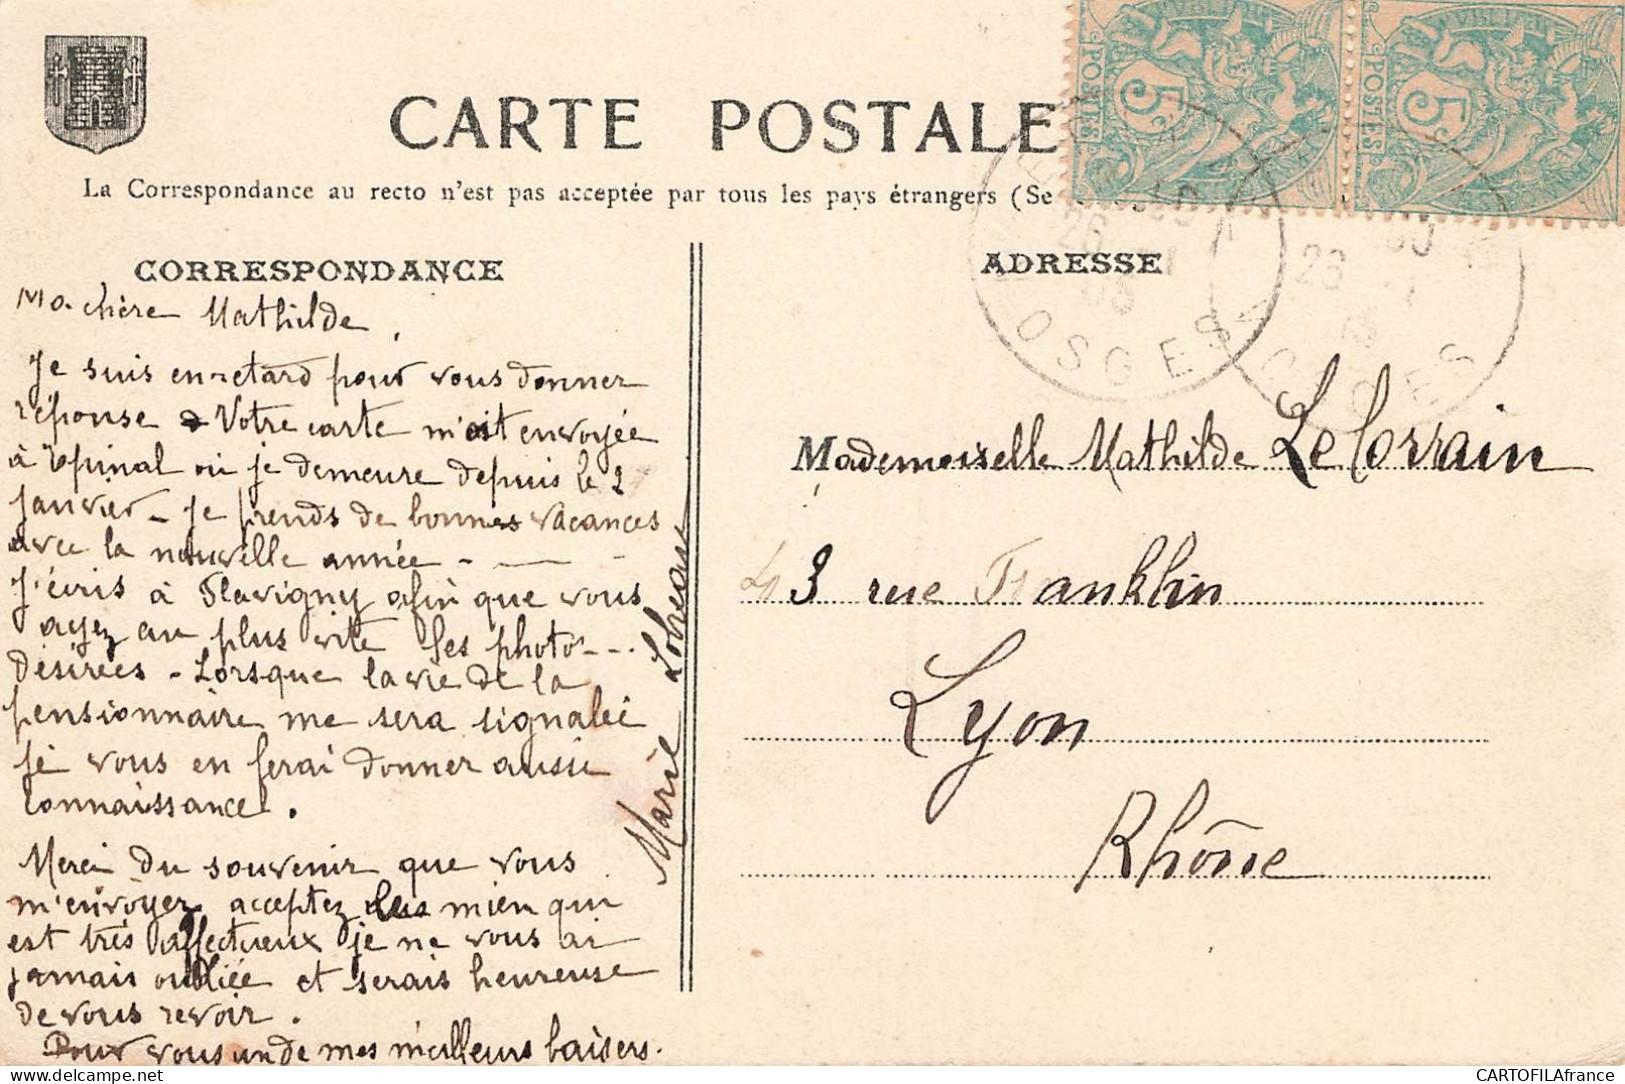 CARTE POSTALE
La Correspondance au recto n'est pas acceptée par tous les pays étrangers (Se
POSTES
5c
POSTES
5c
OSGES
26
CORRESPONDANCE
ADRESSE
Ma chère Mathilde,
Je suis en retard pour vous donner
réponse Votre carte m'est envoyée
à Epinal où je demeure depuis le 2
janvier - je prends de bonnes vacances
avec la nouvelle année -
J'écris à Flavigny afin que vous
ayez au plus vite les photo
désirées - Lorsque la vie de la
pensionnaire me sera signalée
je vous en ferai donner aussi
connaissance.
Merci du souvenir que vous
m'envoyez acceptez le mien qui
est très affectueux je ne vous ai
jamais oubliée et serais heureuse
de vous revoir.
Pour vous un de mes meilleurs baisers.
Marie
Mademoiselle Mathilde Le Lorrain
43 rue Franklin
Lyon
Rhône
CARTOFILAfrance